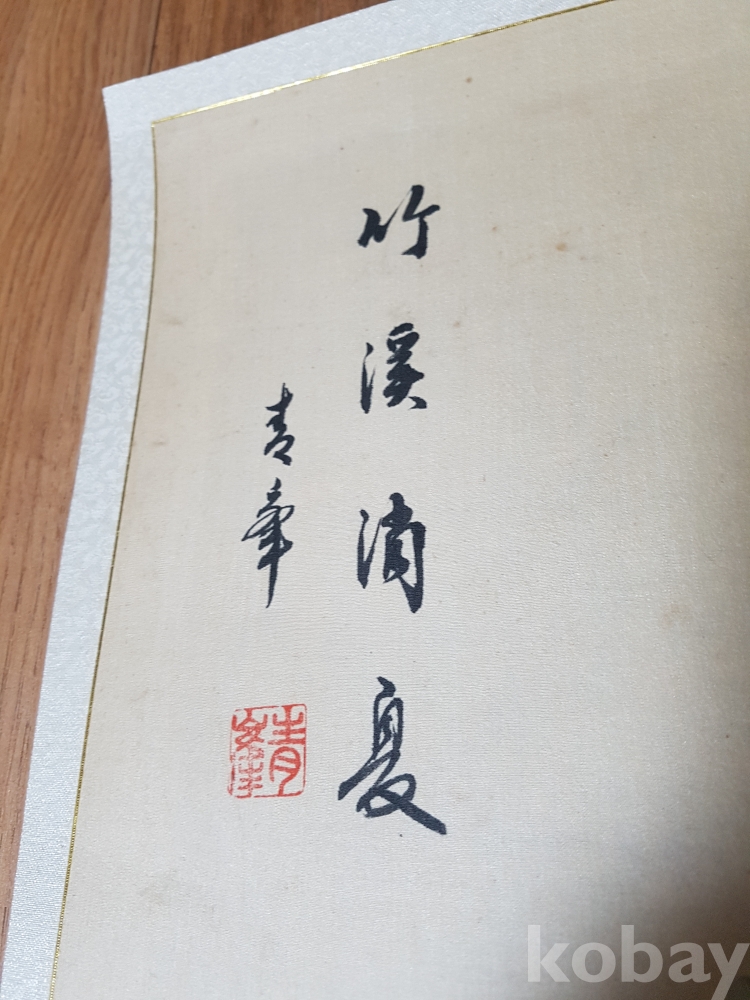 竹溪消夏
青峯
kobay